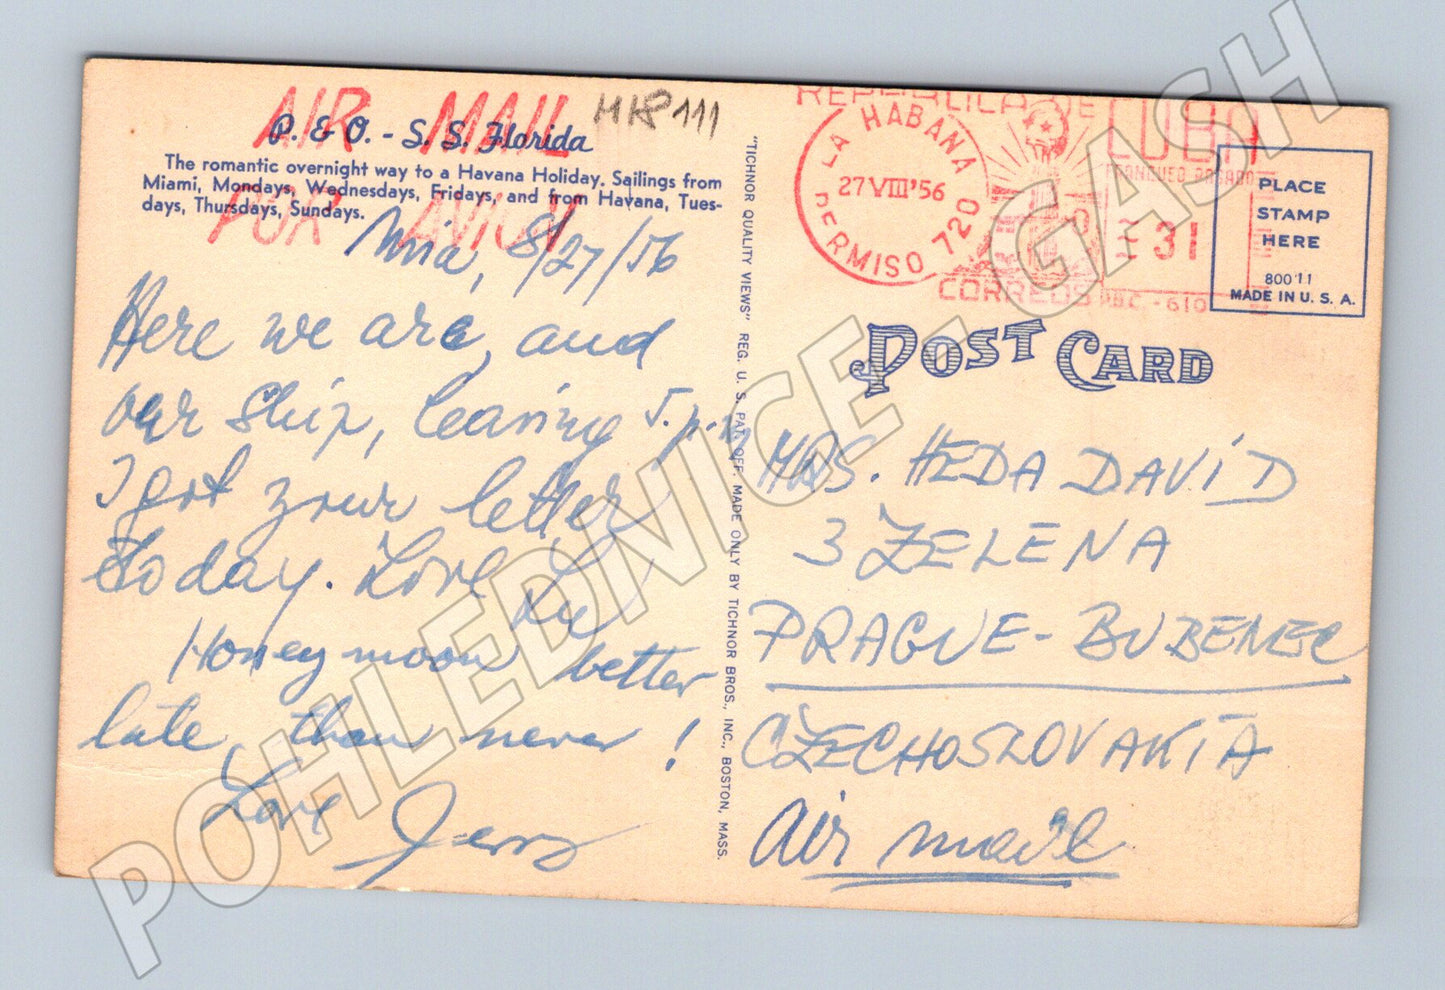 AIR MAIL
POR AVION
MK8111
P. & O. - S. S. Florida
The romantic overnight way to a Havana Holiday. Sailings from
Miami, Mondays, Wednesdays, Fridays, and from Havana, Tues-
days, Thursdays, Sundays.
Mia, 8/27/56
Here we are, and
our ship, leaving 5 p.m
I got your letter
today. Love
Honeymoon better
late, than never!
Love
"TICHNOR QUALITY VIEWS" REG. U. S. PAT. OFF. MADE ONLY BY TICHNOR BROS., INC., BOSTON, MASS.
REPUBLICA DE CUBA
LA HABANA
27 VIII '56
PERMISO 720
FRANQUEO PAGADO
31
CORREOS
PLACE
STAMP
HERE
800'11
MADE IN U. S. A.
POST CARD
MRS. HEDA DAVID
3 ZELENA
PRAGUE - BUBENEC
CZECHOSLOVAKIA
Air mail
POHLEDNICE - GASH